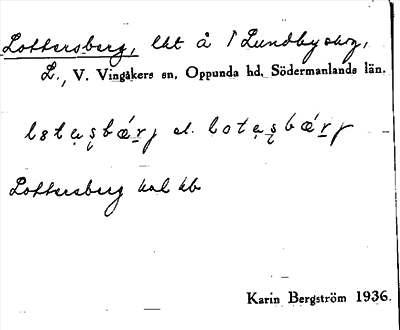 Lottersberg, lht å 1 Lundby skog,
L., V. Vingåkers sn, Oppunda hd, Södermanlands län.
lotạṣbǽr̲j el. lotạṣbǽr̲j
Lottersberg hal kb
Karin Bergström 1936.